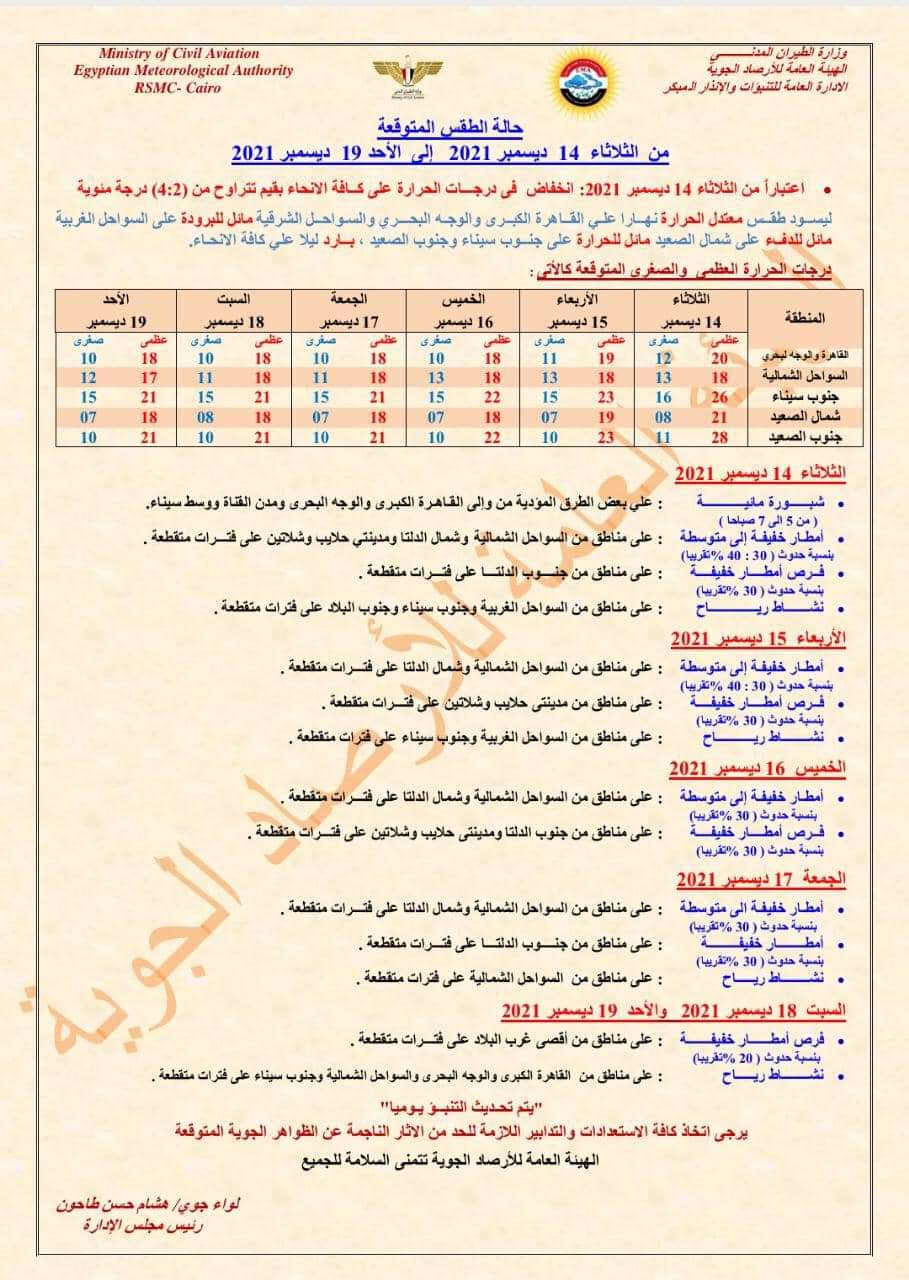 Ministry of Civil Aviation
Egyptian Meteorological Authority
RSMC- Cairo
وزارة الطيران المدنـــــي
الهيئة العامة للأرصاد الجوية
الادارة العامة للتنبؤات والإنذار المبكر
حالة الطقس المتوقعة
من الثلاثاء 14 ديسمبر 2021 إلى الأحد 19 ديسمبر 2021
• اعتباراً من الثلاثاء 14 ديسمبر 2021: انخفاض فى درجــات الحرارة على كافة الانحاء بقيم تتراوح من (4:2) درجة مئوية
ليسود طقـس معتدل الحرارة نهارا علي القاهرة الكبرى والوجه البحــري والسواحــل الشرقية مائل للبرودة على السواحل الغربية
مائل للدفء على شمال الصعيد مائل للحرارة على جنــوب سيناء وجنوب الصعيد ، بــارد ليلا علي كافة الانحاء.
درجات الحرارة العظمى والصغرى المتوقعة كالأتى :
المنطقة الثلاثاء الأربعاء الخميس الجمعة السبت الأحد
14 ديسمبر 15 ديسمبر 16 ديسمبر 17 ديسمبر 18 ديسمبر 19 ديسمبر
عظمى صغرى عظمى صغرى عظمى صغرى عظمى صغرى عظمى صغرى عظمى صغرى
القاهرة والوجه لبحري 20 12 19 11 18 10 18 10 18 10 18 10
السواحل الشمالية 18 13 18 13 18 13 18 11 18 11 17 12
جنوب سيناء 26 16 23 15 22 15 21 15 21 15 21 15
شمال الصعيد 21 08 19 07 18 07 18 07 18 08 18 07
جنوب الصعيد 28 11 23 10 22 10 21 10 21 10 21 10
الثلاثاء 14 ديسمبر 2021
• شبـــورة مائيـــة : علي بعض الطرق المؤدية من وإلى القاهرة الكبرى والوجه البحرى ومدن القناة ووسط سيناء.
( من 5 الى 7 صباحا )
• أمطار خفيفة إلى متوسطة : على مناطق من السواحل الشمالية وشمال الدلتا ومدينتي حلايب وشلاتين على فتـــرات متقطعة .
بنسبة حدوث ( 30 : 40 %تقريبا)
• فـرص أمطــار خفيفــة : على مناطق من جنــوب الدلتــا على فتـــرات متقطعة .
بنسبة حدوث ( 30 %تقريبا)
• نشــــاط ريــــــاح : على مناطق من السواحل الغربية وجنوب سيناء وجنوب البلاد على فترات متقطعة .
الأربعاء 15 ديسمبر 2021
• أمطار خفيفة إلى متوسطة : على مناطق من السواحل الشمالية وشمال الدلتا على فتـــرات متقطعة .
بنسبة حدوث ( 30 : 40 %تقريبا)
• فـرص أمطــار خفيفــة : على مناطق من مدينتى حلايب وشلاتين على فتـــرات متقطعة .
بنسبة حدوث ( 30 %تقريبا)
• نشــــاط ريــــــاح : على مناطق من السواحل الغربية وجنوب سيناء على فترات متقطعة .
الخميس 16 ديسمبر 2021
• أمطار خفيفة إلى متوسطة : على مناطق من السواحل الشمالية وشمال الدلتا على فتـــرات متقطعة .
بنسبة حدوث ( 30 %تقريبا)
• فـرص أمطــار خفيفــة : على مناطق من جنوب الدلتا ومدينتى حلايب وشلاتين على فتـــرات متقطعة .
بنسبة حدوث ( 30 %تقريبا)
الجمعة 17 ديسمبر 2021
• أمطار خفيفة الى متوسطة : على مناطق من السواحل الشمالية وشمال الدلتا على فترات متقطعة .
بنسبة حدوث ( 30 %تقريبا)
• أمطـــار خفيفــة : على مناطق من جنــوب الدلتــا على فتـــرات متقطعة .
بنسبة حدوث ( 30 %تقريبا)
• نشــــاط ريــــــاح : على مناطق من السواحل الشمالية على فترات متقطعة .
السبت 18 ديسمبر 2021 والأحد 19 ديسمبر 2021
• فرص أمطــار خفيفــــة : على مناطق من أقصى غرب البلاد على فتـــرات متقطعة .
بنسبة حدوث ( 20 %تقريبا)
• نشــــاط ريــــــاح : على مناطق من القاهرة الكبرى والوجه البحرى والسواحل الشمالية وجنوب سيناء على فترات متقطعة .
"يتم تحديث التنبــؤ يـوميا"
يرجى اتخاذ كافة الاستعدادات والتدابير اللازمة للحد من الاثار الناجمة عن الظواهر الجوية المتوقعة
الهيئة العامة للأرصاد الجوية تتمنى السلامة للجميع
لواء جوي/ هشام حسن طاحون
رئيس مجلس الإدارة
الهيئة العامة للأرصاد الجوية